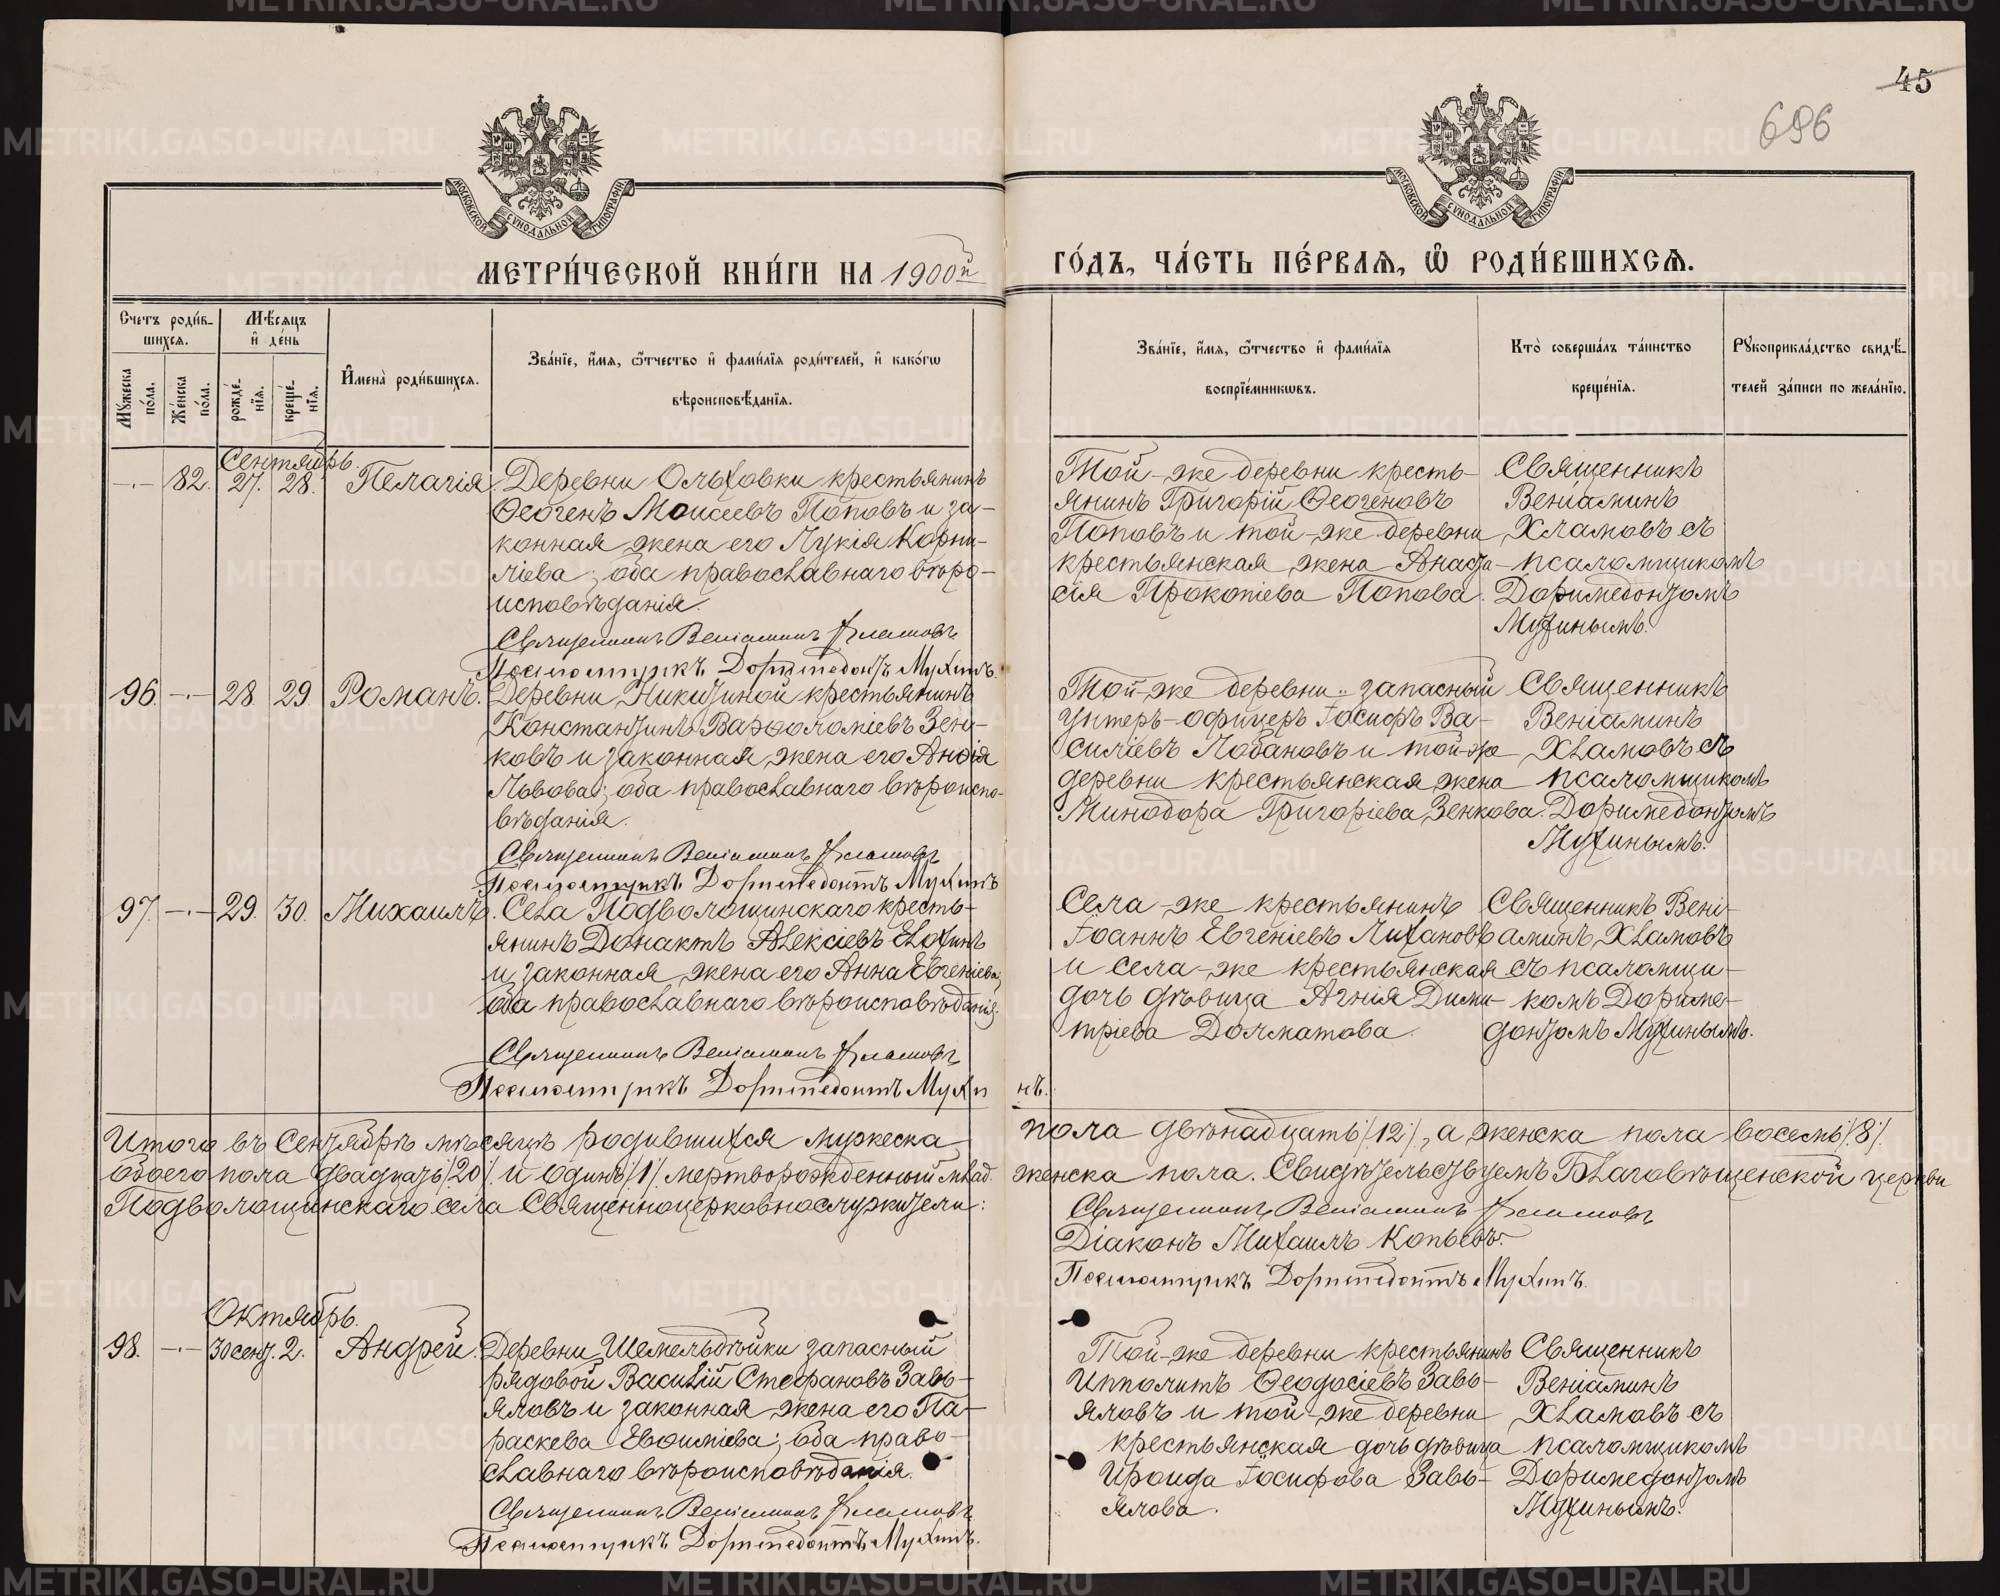 45
696
МОСКОВСКОЙ СѴНОДАЛЬНОЙ ТИПОГРАФІИ
МОСКОВСКОЙ СѴНОДАЛЬНОЙ ТИПОГРАФІИ
МЕТРИ́ЧЕСКОЙ КНИ́ГИ НА 1900й
ГО́ДЪ, ЧА́СТЬ ПЕ́РВАѦ, Ѡ РОДИ́ВШИХСѦ.
Счетъ роди́в-
шихсѧ.
Мѣ́сѧцъ
и де́нь
Мꙋжеска
по́ла.
Же́нска
по́ла.
рожде́-
нїѧ.
креще́-
нїѧ.
Имена̀ роди́вшихсѧ.
Зва́нїе, и́мѧ, ѻ́тчество и фами́лїѧ роди́телей, и како́гѡ
вѣроисповѣ́данїѧ.
Зва́нїе, и́мѧ, ѻ́тчество и фами́лїѧ
воспрїе́мникѡвъ.
Кто̀ соверша́лъ та́инство
креще́нїѧ.
Рꙋкоприкла́дство свидѣ́-
телей за́писи по жела́нїю.
Сентябрь.
—.— 82. 27. 28. Пелагія. Деревни Ольховки крестьянинъ
Ѳеогенъ Моисеевъ Поповъ и за-
конная жена его Лукія Корни-
ліева; оба православнаго вѣро-
исповѣданія.
Священникъ Веніаминъ Хламовъ
Псаломщикъ Доримедонтъ Мухинъ.
Той-же деревни кресть-
янинъ Григорій Ѳеогеновъ
Поповъ и той-же деревни
крестьянская жена Анаста-
сія Прокопіева Попова.
Священникъ
Веніаминъ
Хламовъ съ
псаломщикомъ
Доримедонтомъ
Мухинымъ.
96. —.— 28. 29. Романъ. Деревни Никитиной крестьянинъ
Константинъ Варѳоломіевъ Зен-
ковъ и законная жена его Анѳія
Львова; оба православнаго вѣроиспо-
вѣданія.
Священникъ Веніаминъ Хламовъ
Псаломщикъ Доримедонтъ Мухинъ
Той-же деревни: запасный
унтеръ-офицеръ Іосифъ Ва-
силіевъ Лобановъ и той-же
деревни крестьянская жена
Минодора Григоріева Зенкова.
Священникъ
Веніаминъ
Хламовъ съ
псаломщикомъ
Доримедонтомъ
Мухинымъ.
97. —.— 29. 30. Михаилъ. Села Подволошинскаго кресть-
янинъ Донактъ Алексіевъ Елохинъ
и законная жена его Анна Евгеніева;
оба православнаго вѣроисповѣданія.
Священникъ Веніаминъ Хламовъ
Псаломщикъ Доримедонтъ Мухинъ.
Села-же крестьянинъ
Іоаннъ Евгеніевъ Лихановъ
и села-же крестьянская
дочь дѣвица Агнія Дими-
тріева Долматова.
Священникъ Вені-
аминъ Хламовъ
съ псаломщи-
комъ Дориме-
донтомъ Мухинымъ.
Итого въ Сентябрѣ мѣсяцѣ родившихся мужеска пола двѣнадцать /12/, а женска пола восемь /8/.
обоего пола двадцать /20/ и одинъ /1/ мертворожденный млад. женска пола. Свидѣтельствуемъ Благовѣщенской церкви
Подволошинскаго села Священноцерковнослужители:
Священникъ Веніаминъ Хламовъ
Діаконъ Михаилъ Копьевъ.
Псаломщикъ Доримедонтъ Мухинъ.
Октябрь.
98. —.— 30 сент. 2. Андрей. Деревни Шемельдѣйки запасный
рядовой Василій Стефановъ Завь-
яловъ и законная жена его Па-
раскева Евѳиміева; оба право-
славнаго вѣроисповѣданія.
Священникъ Веніаминъ Хламовъ
Псаломщикъ Доримедонтъ Мухинъ.
Той-же деревни крестьянинъ
Ипполитъ Ѳеодосіевъ Завь-
яловъ и той-же деревни
крестьянская дочь дѣвица
Ираида Іосифова Завь-
ялова.
Священникъ
Веніаминъ
Хламовъ съ
псаломщикомъ
Доримедонтомъ
Мухинымъ.
METRIKI.GASO-URAL.RU